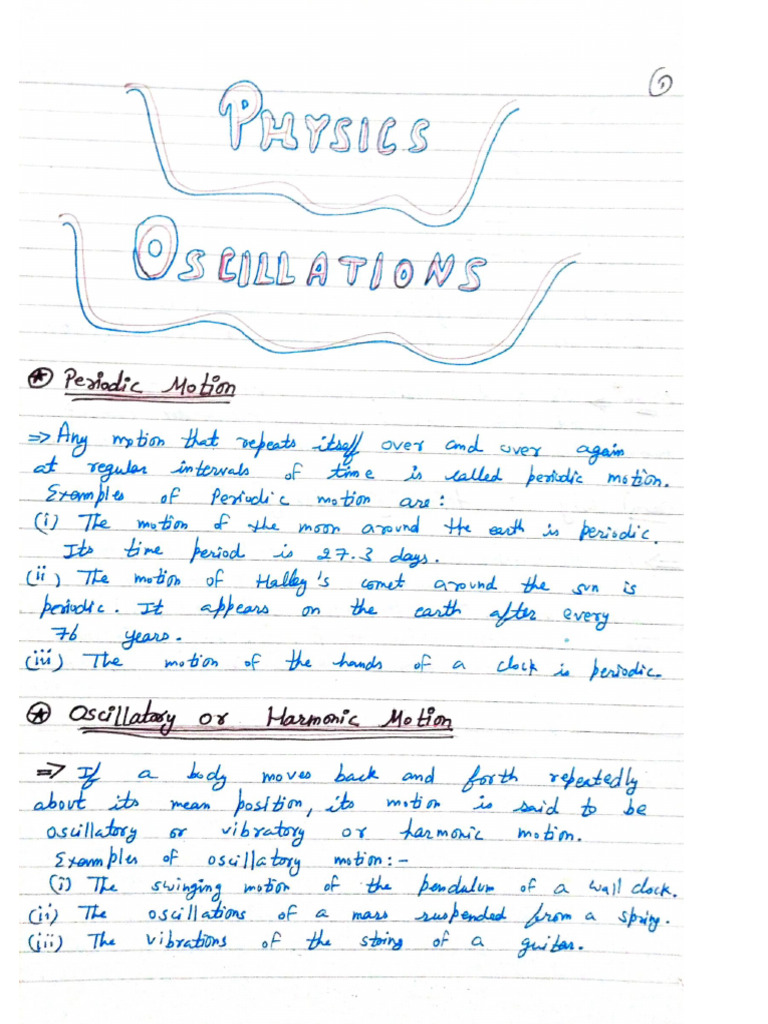 1
PHYSICS
OSCILLATIONS
Periodic Motion
=> Any motion that repeats itself over and over again
at regular intervals of time is called periodic motion.
Examples of Periodic motion are:
(i) The motion of the moon around the earth is periodic.
Its time period is 27.3 days.
(ii) The motion of Halley's comet around the sun is
periodic. It appears on the earth after every
76 years.
(iii) The motion of the hands of a clock is periodic.
Oscillatory or Harmonic Motion
=> If a body moves back and forth repeatedly
about its mean position, its motion is said to be
oscillatory or vibratory or harmonic motion.
Examples of oscillatory motion:-
(i) The swinging motion of the pendulum of a wall clock.
(ii) The oscillations of a mass suspended from a spring.
(iii) The vibrations of the string of a guitar.